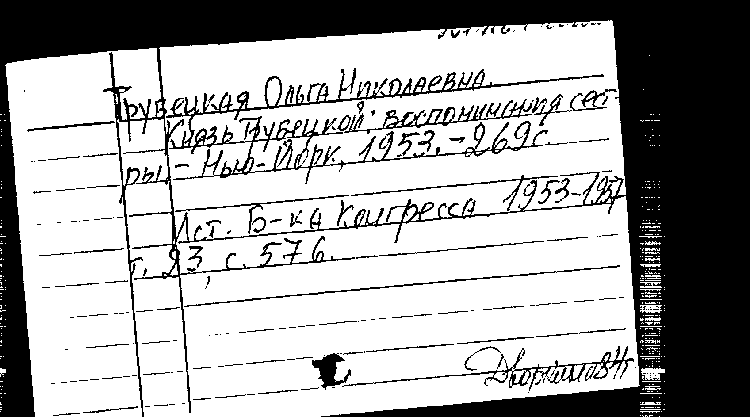 Трубецкая Ольга Николаевна.
Князь Трубецкой: воспоминания сест-
ры. – Нью-Йорк, 1953. – 269 с.
Ист. Б-ка Конгресса 1953-1957
т. 23, с. 576.
Дворкина 84г